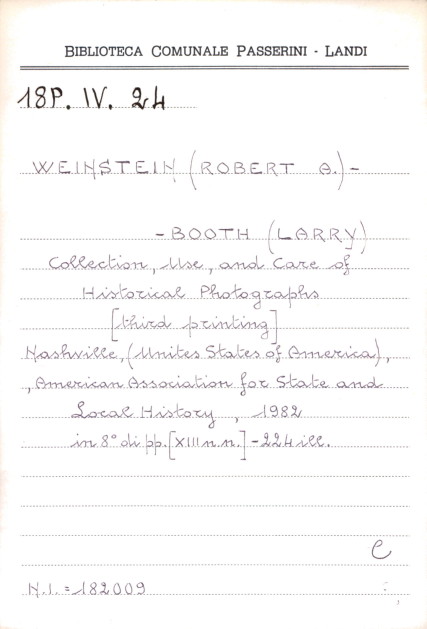 BIBLIOTECA COMUNALE PASSERINI - LANDI
18P. IV. 24
WEINSTEIN (ROBERT A.) -
- BOOTH (LARRY)
Collection, Use, and Care of
Historical Photographs
[third printing]
Nashville, (Unites States of America),
, American Association for State and
Local History, 1982
in 8° di pp. [XIII n.n.] - 224 ill.
C
N.I. = 182009